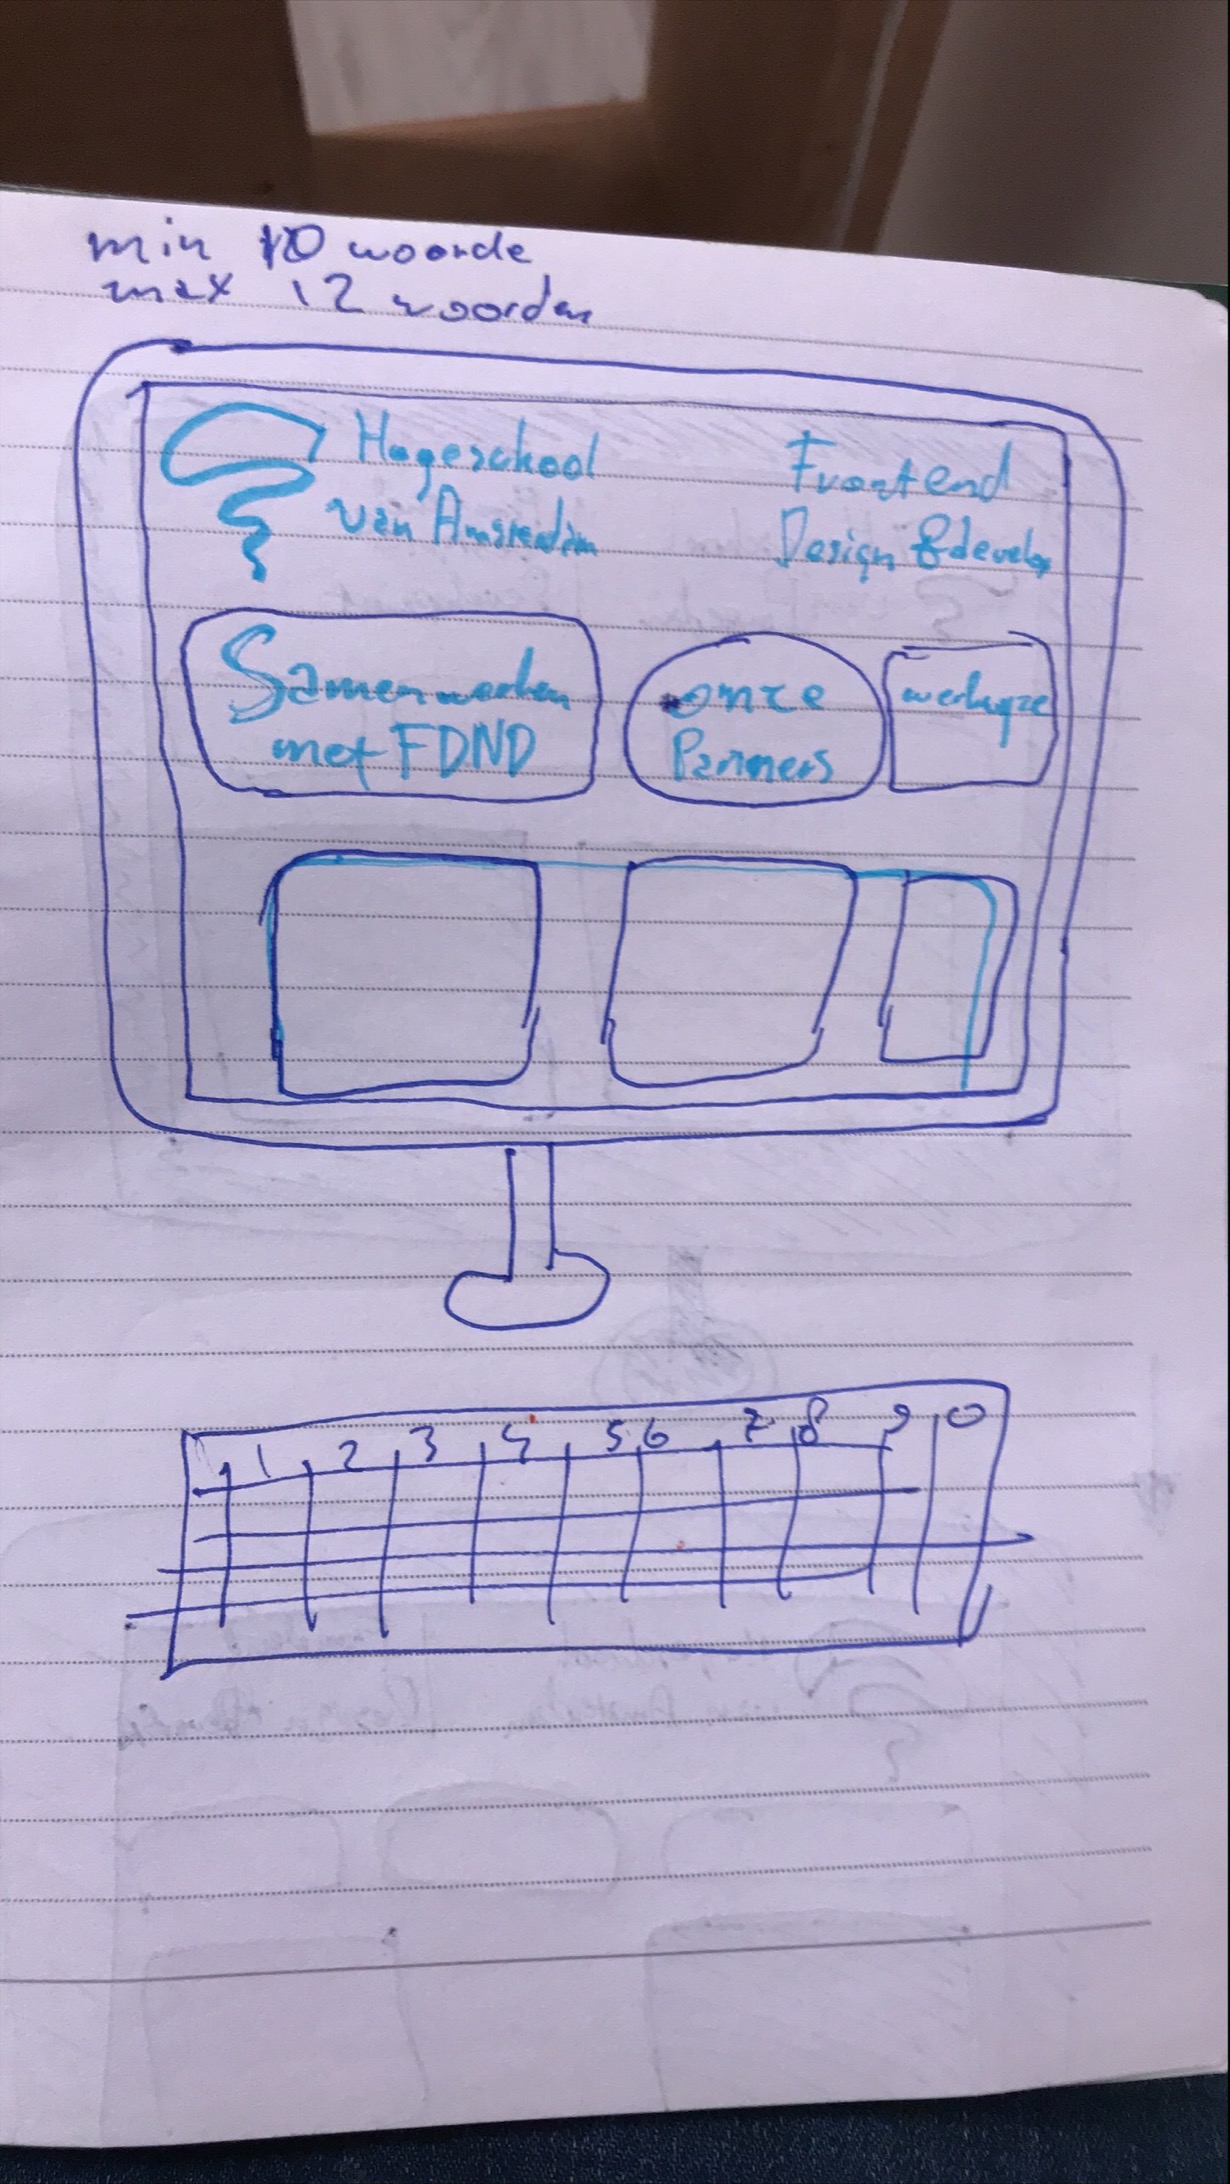 min 10 woorde
max 12 woorden
Hogeschool
van Amsterdam
Frontend
Design & develop
Samenwerken
met FDND
onze
Partners
werkwijze
1 2 3 4 5 6 7 8 9 0